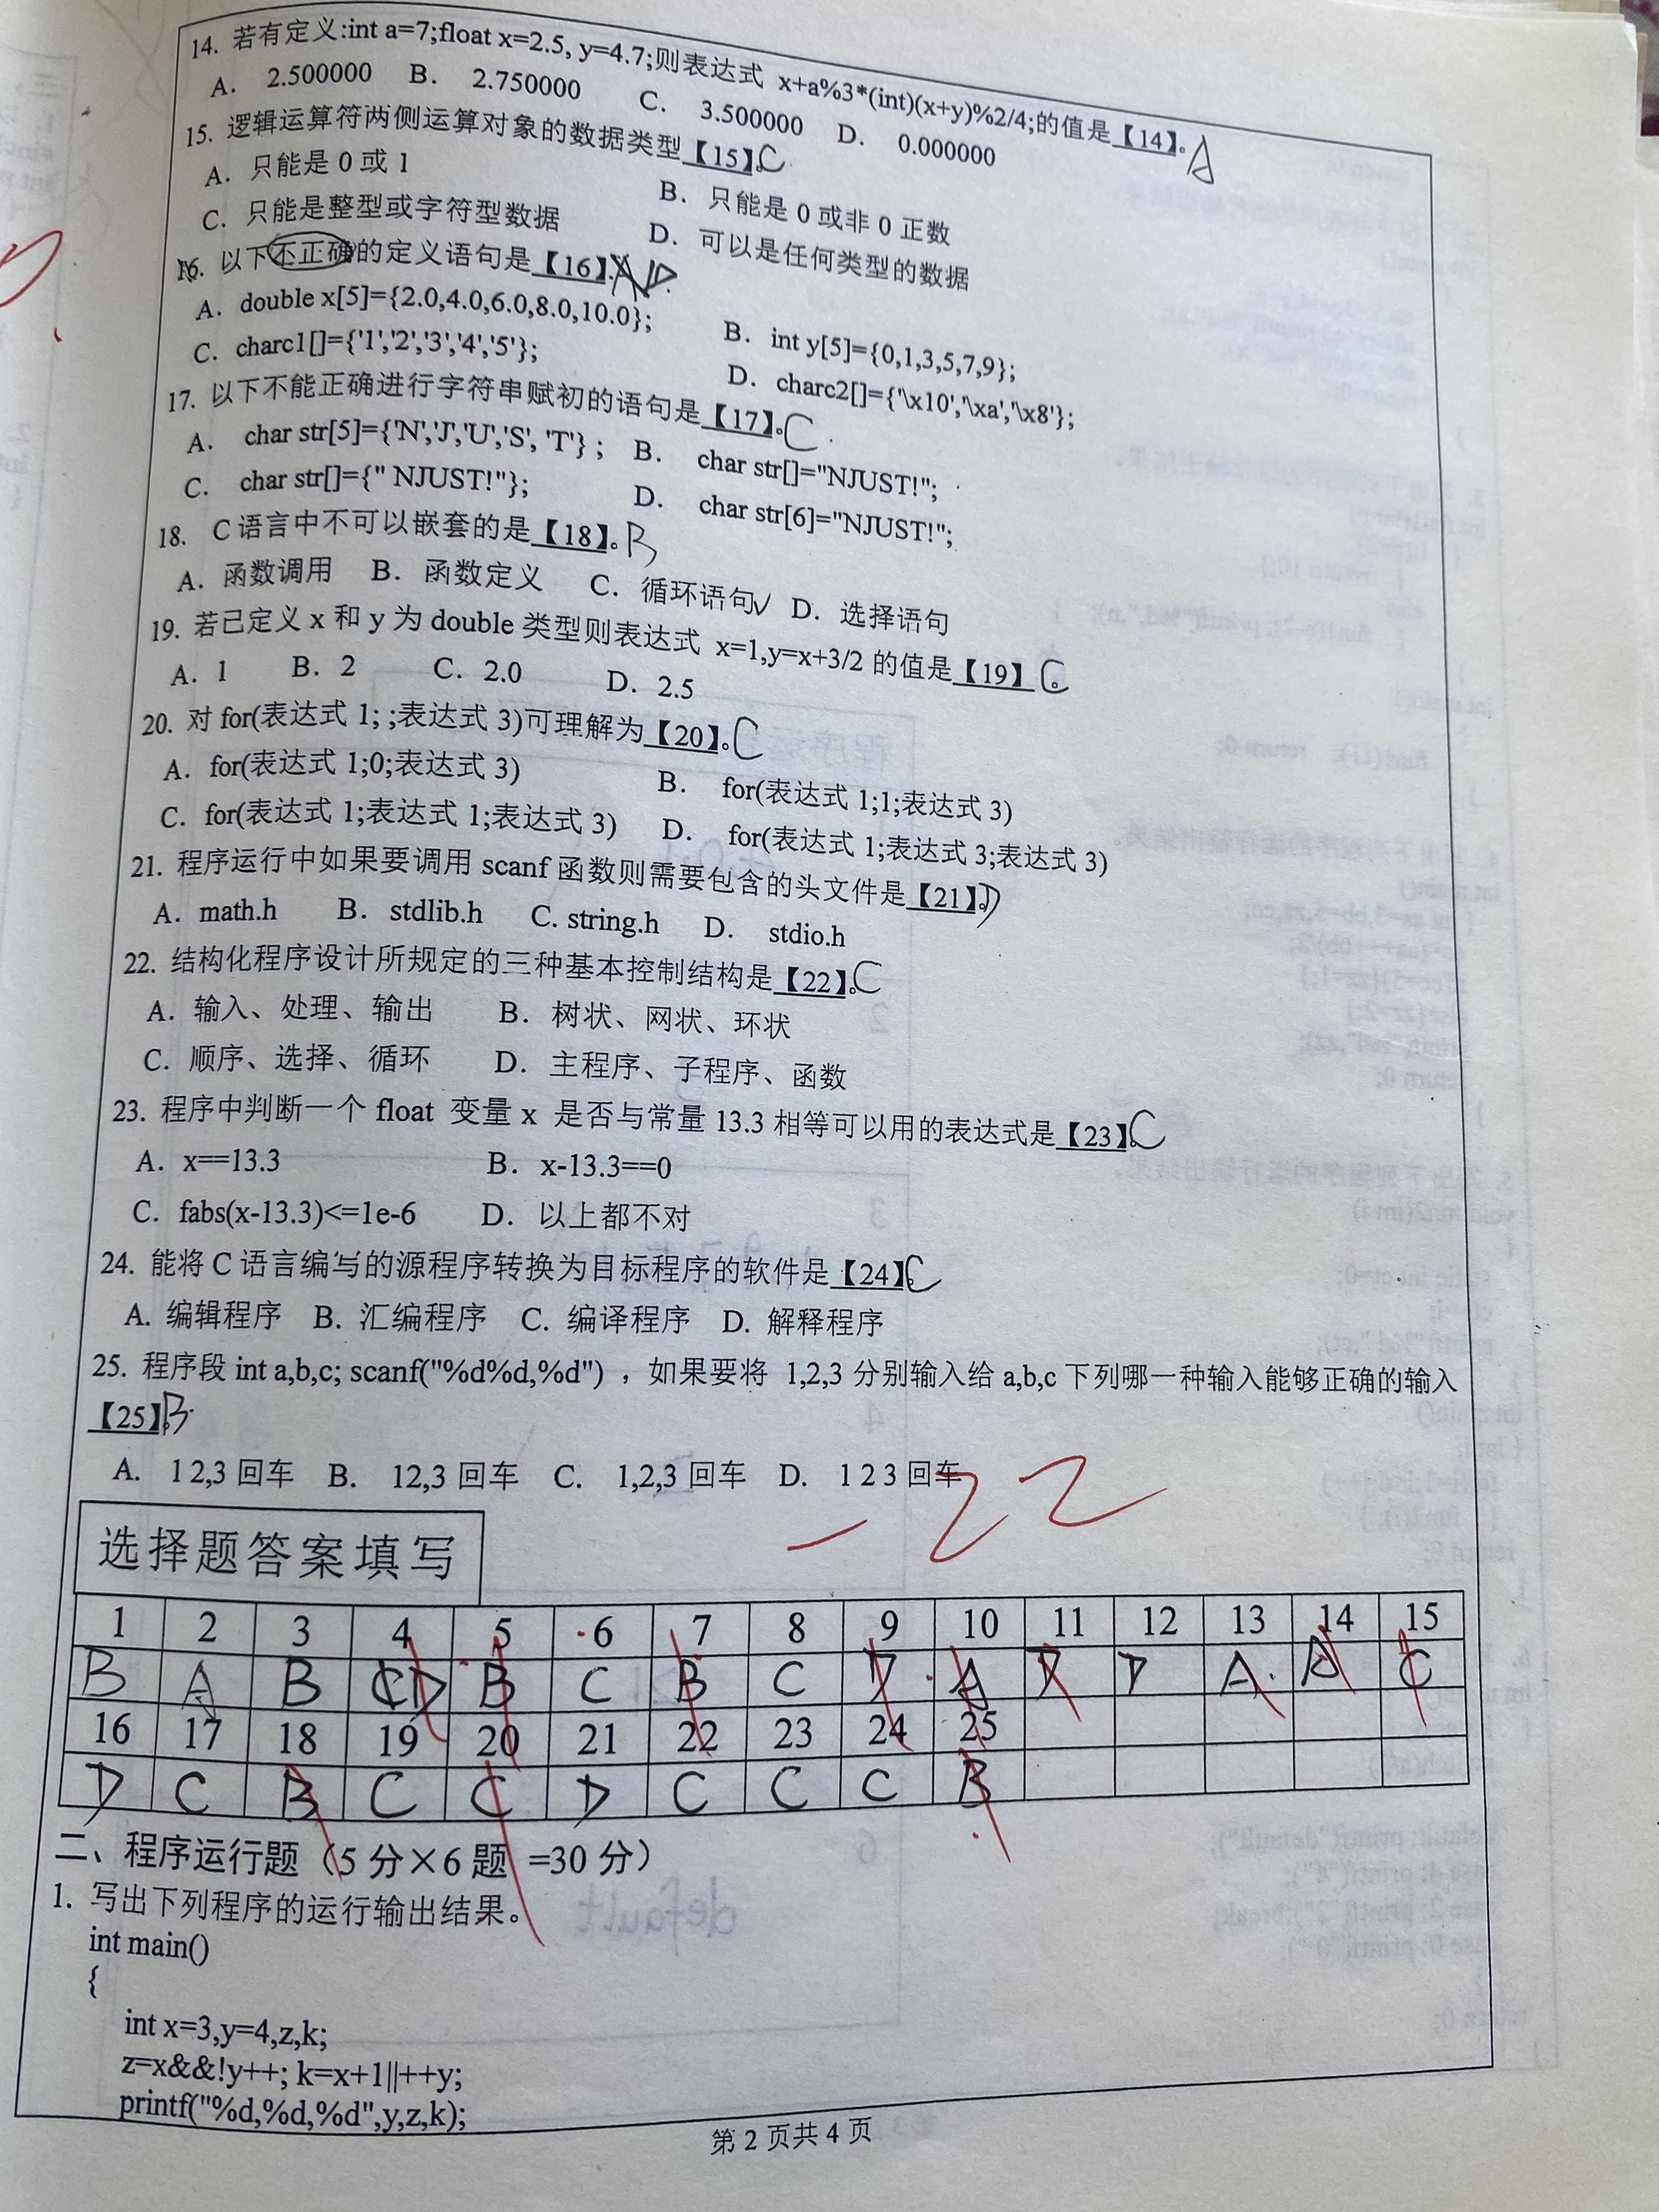 14. 若有定义:int a=7;float x=2.5, y=4.7;则表达式 x+a%3*(int)(x+y)%2/4;的值是【14】。A
A. 2.500000 B. 2.750000 C. 3.500000 D. 0.000000
15. 逻辑运算符两侧运算对象的数据类型【15】。C
A. 只能是 0 或 1 B. 只能是 0 或非 0 正数
C. 只能是整型或字符型数据 D. 可以是任何类型的数据
16. 以下不正确的定义语句是【16】. D
A. double x[5]={2.0,4.0,6.0,8.0,10.0}; B. int y[5]={0,1,3,5,7,9};
C. charc1[]={'1','2','3','4','5'}; D. charc2[]={'\x10','\xa','\x8'};
17. 以下不能正确进行字符串赋初的语句是【17】。C
A. char str[5]={'N','J','U','S', 'T'} ; B. char str[]="NJUST!";
C. char str[]={" NJUST!"}; D. char str[6]="NJUST!";
18. C 语言中不可以嵌套的是【18】。B
A. 函数调用 B. 函数定义 C. 循环语句√ D. 选择语句
19. 若已定义 x 和 y 为 double 类型则表达式 x=1,y=x+3/2 的值是【19】。C
A. 1 B. 2 C. 2.0 D. 2.5
20. 对 for(表达式 1; ;表达式 3)可理解为【20】。C
A. for(表达式 1;0;表达式 3) B. for(表达式 1;1;表达式 3)
C. for(表达式 1;表达式 1;表达式 3) D. for(表达式 1;表达式 3;表达式 3)
21. 程序运行中如果要调用 scanf 函数则需要包含的头文件是【21】。D
A. math.h B. stdlib.h C. string.h D. stdio.h
22. 结构化程序设计所规定的三种基本控制结构是【22】。C
A. 输入、处理、输出 B. 树状、网状、环状
C. 顺序、选择、循环 D. 主程序、子程序、函数
23. 程序中判断一个 float 变量 x 是否与常量 13.3 相等可以用的表达式是【23】。C
A. x==13.3 B. x-13.3==0
C. fabs(x-13.3)<=1e-6 D. 以上都不对
24. 能将 C 语言编写的源程序转换为目标程序的软件是【24】。C
A. 编辑程序 B. 汇编程序 C. 编译程序 D. 解释程序
25. 程序段 int a,b,c; scanf("%d%d,%d") ，如果要将 1,2,3 分别输入给 a,b,c 下列哪一种输入能够正确的输入
【25】。B
A. 1 2,3 回车 B. 12,3 回车 C. 1,2,3 回车 D. 1 2 3 回车
-22
选择题答案填写
1 2 3 4 5 6 7 8 9 10 11 12 13 14 15
B A B D B C B C D A D D A A C
16 17 18 19 20 21 22 23 24 25
D C B C C D C C C B
二、程序运行题（5 分×6 题 =30 分）
1. 写出下列程序的运行输出结果。
int main()
{
int x=3,y=4,z,k;
z=x&&!y++; k=x+1||++y;
printf("%d,%d,%d",y,z,k);
第 2 页共 4 页